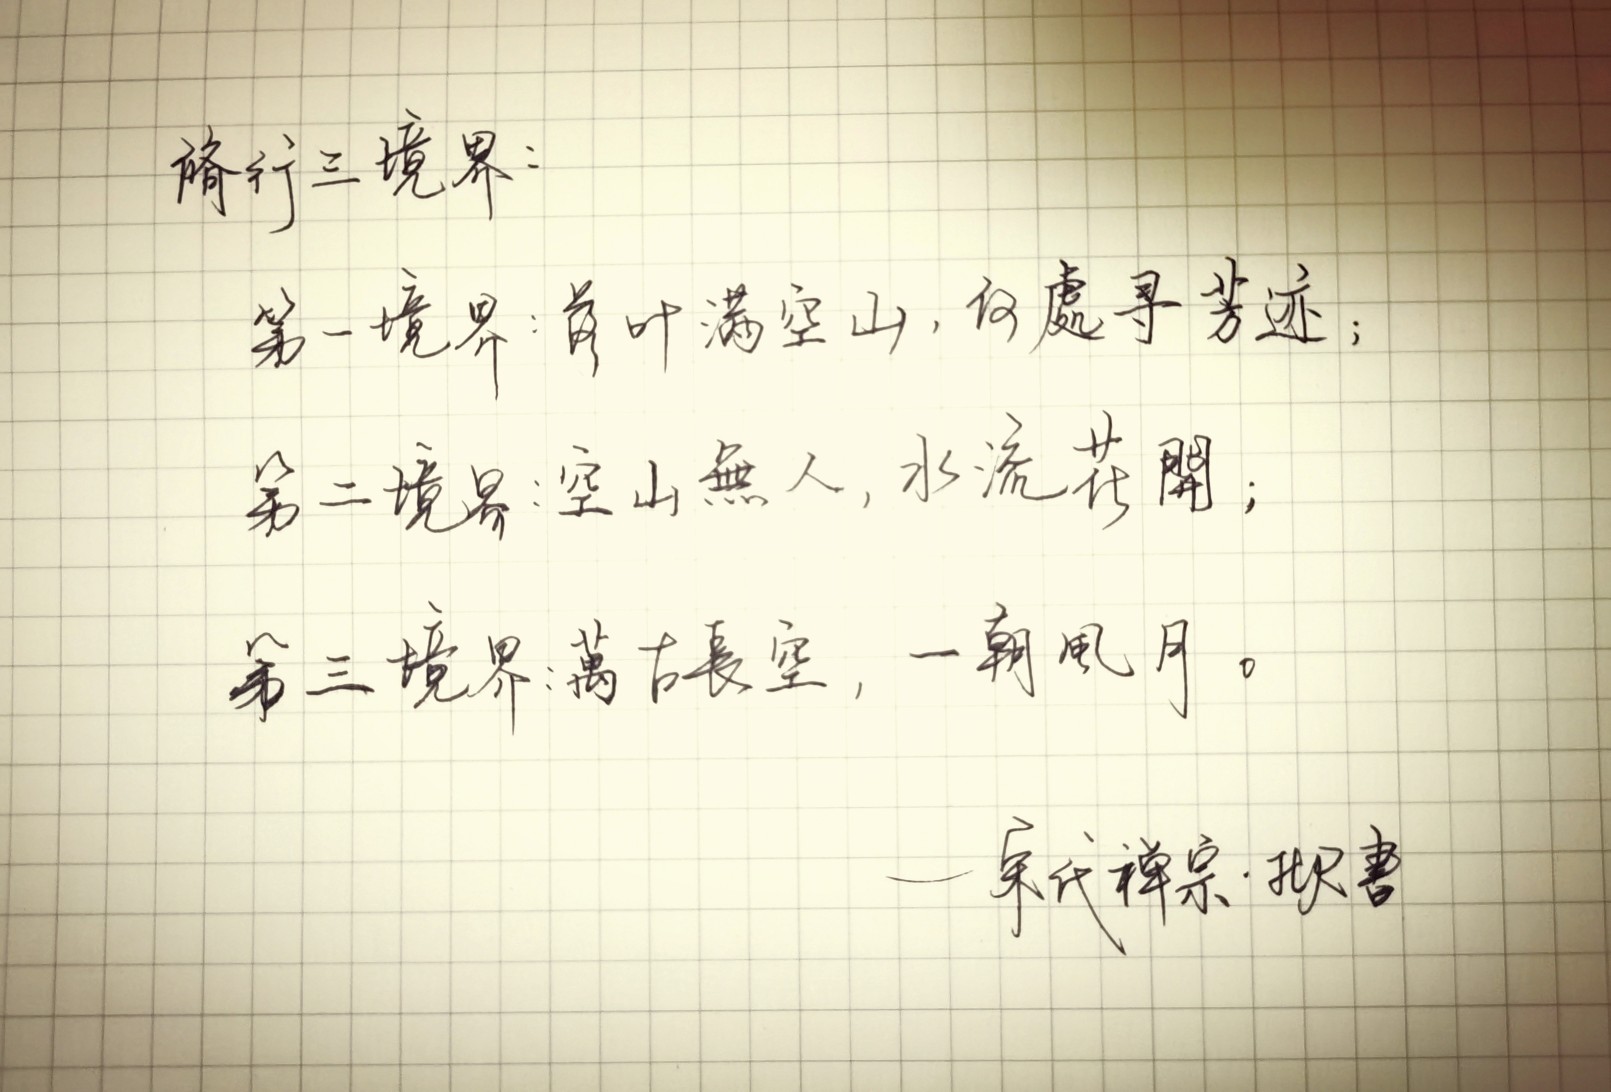 脩行三境界：
第一境界：落叶满空山，何處寻芳迹；
第二境界：空山無人，水流花開；
第三境界：萬古長空，一朝風月。
——宋代禅宗·書